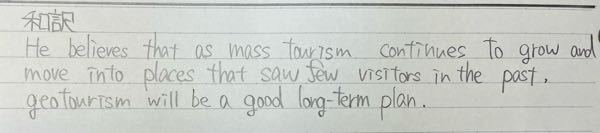 和訳
He believes that as mass tourism continues to grow and
move into places that saw few visitors in the past,
geotourism will be a good long-term plan.